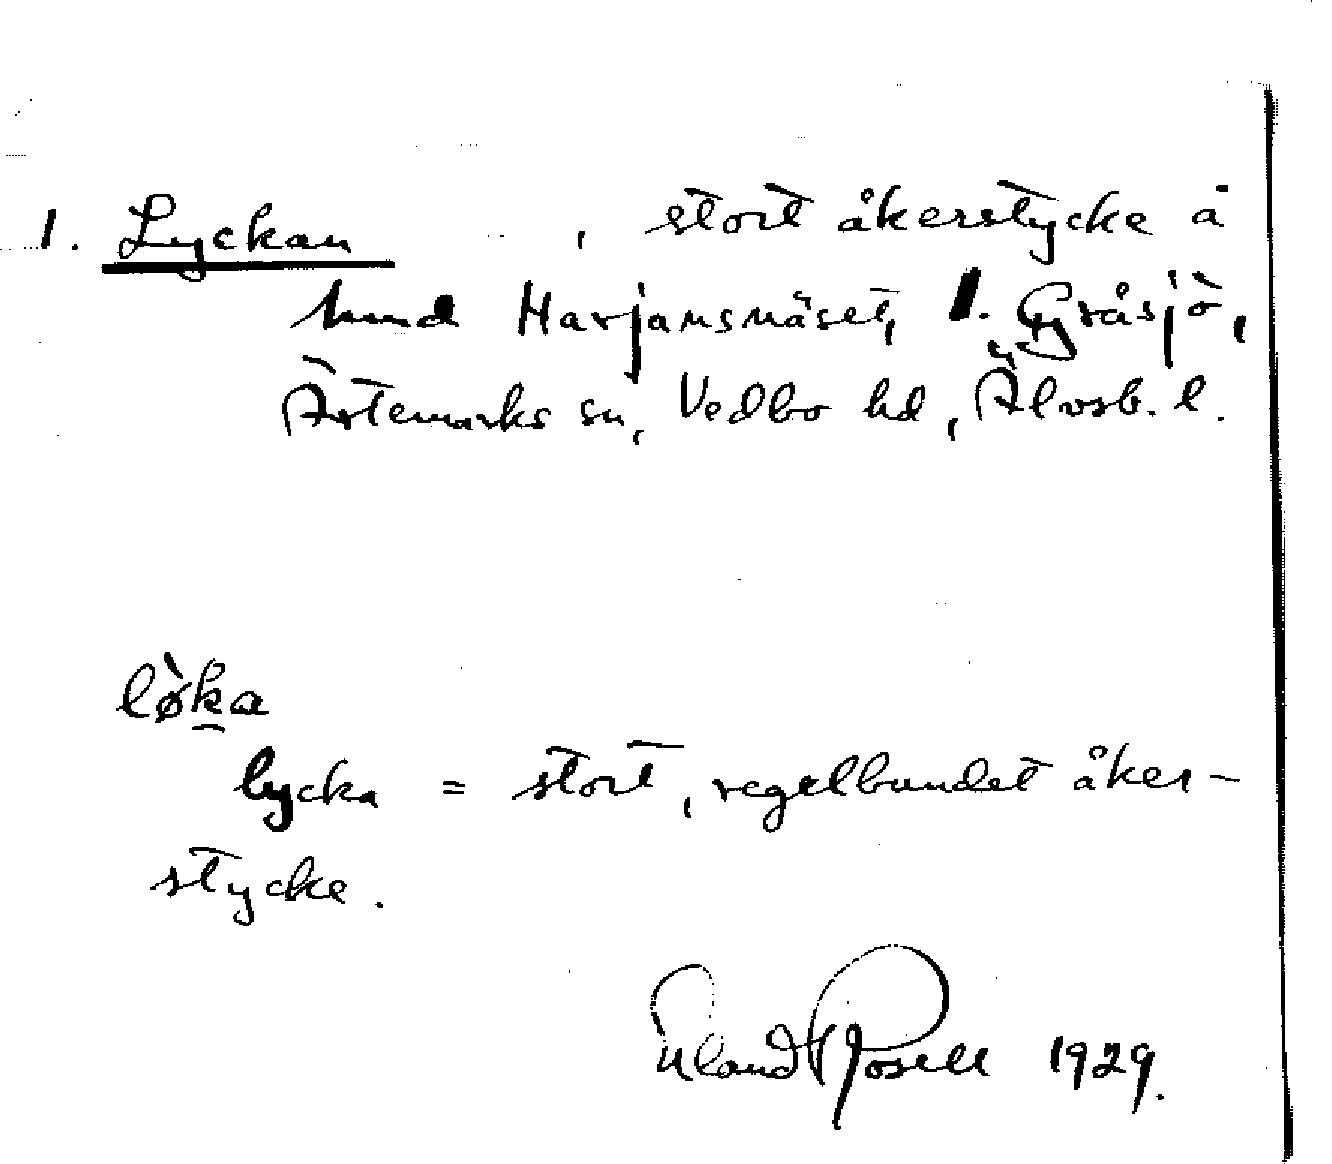 1. Lyckan , stort åkerstycke å
hmd Harjansnäset, 1. Gråsjö,
Ärtemarks sn, Vedbo hd, Älvsb. l.
lø̀ka
lycka = stort, regelbundet åker-
stycke.
Erland Rosell 1929.